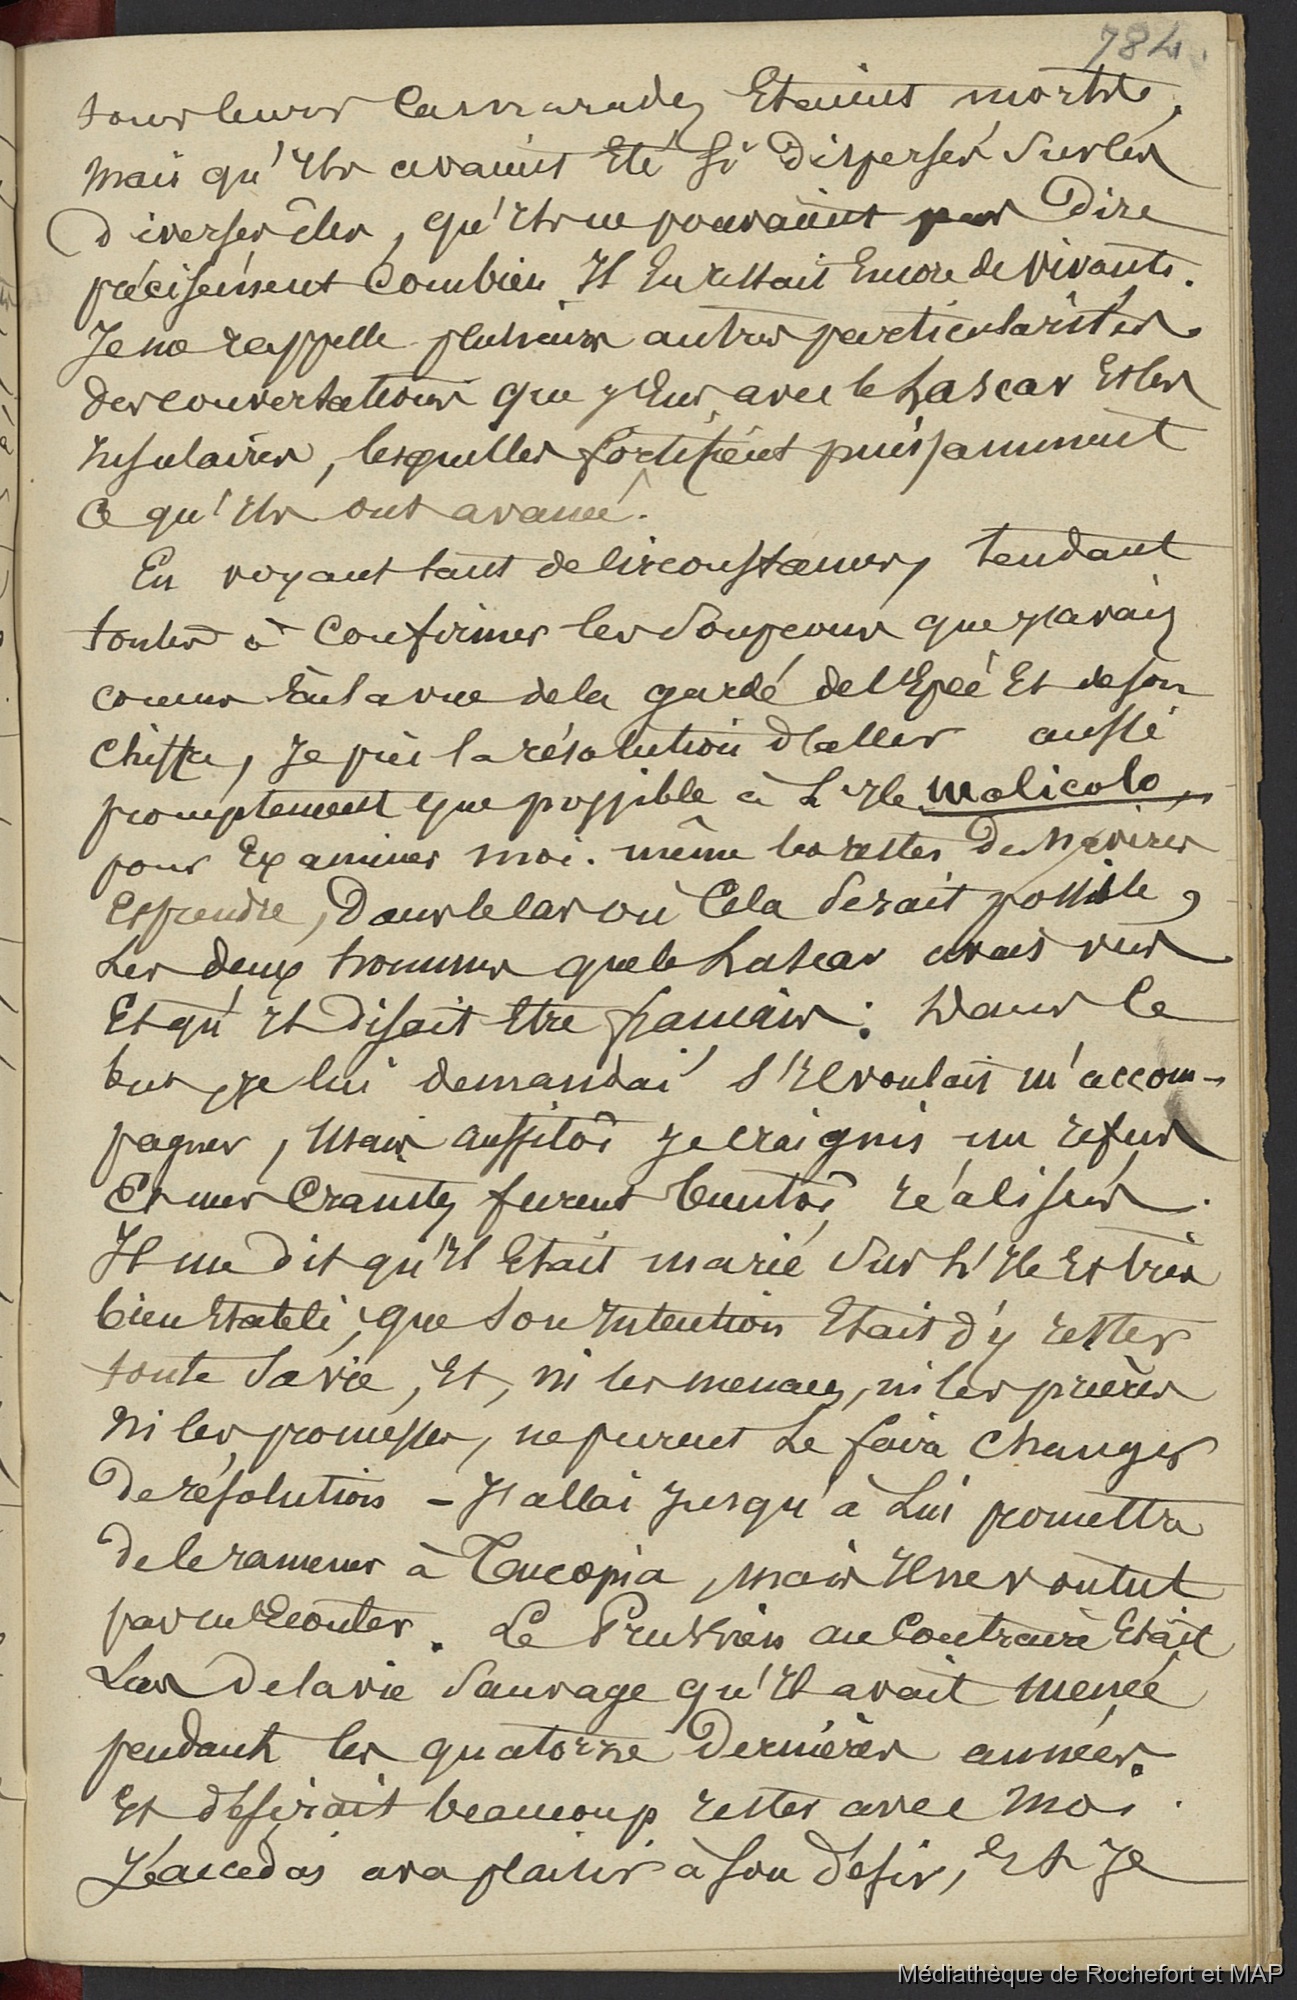 784.
tous leurs Camarades Etaient morts,
mais qu'Ils avaient Eté Si Dispersés Sur les
Diverses îles, qu'Ils ne pouvaient pas Dire
précisément Combien Il En restait Encore de Vivants.
Je me rappelle plusieurs autres particularités
des conversations que j'Eus avec le Lascar Et les
Insulaires, lesquelles fortifient puissamment
Ce qu'Ils ont avancé.
En voyant tant de Circonstances, tendant
toutes à Confirmer les Soupçons que j'avais
conçus à la vue de la garde de l'Epée Et de son
Chiffre, Je pris la résolution d'aller aussi
promptement que possible à L'Ile Malicolo,
pour Examiner moi-même les restes Des Navires
Et prendre, Dans le Cas où Cela Serait possible,
Les deux hommes que le Lascar avait vus
Et qu'Il Disait Etre français: Dans Ce
but, je lui demandai S'Il voulait m'accom-
pagner, Mais aussitôt je Craignis un refus
Et mes Craintes furent bientôt réalisées.
Il me Dit qu'Il Etait marié Sur L'Ile Et très
bien Etabli, que Son Intention Etait d'y rester
toute Sa vie, Et, ni les menaces, ni les prières
Ni les promesses, ne purent Le faire Changer
De résolution - J'allai Jusqu'à Lui promettre
de le ramener à Tucopia, Mais Il ne voulut
pas m'Ecouter. Le Prussien au Contraire Etait
Las De la vie Sauvage qu'Il avait menée
pendant les quatorze Dernières années.
Et désirait beaucoup rester avec Moi.
J'accédai avec plaisir à Son Désir, Et Je
Médiathèque de Rochefort et MAP